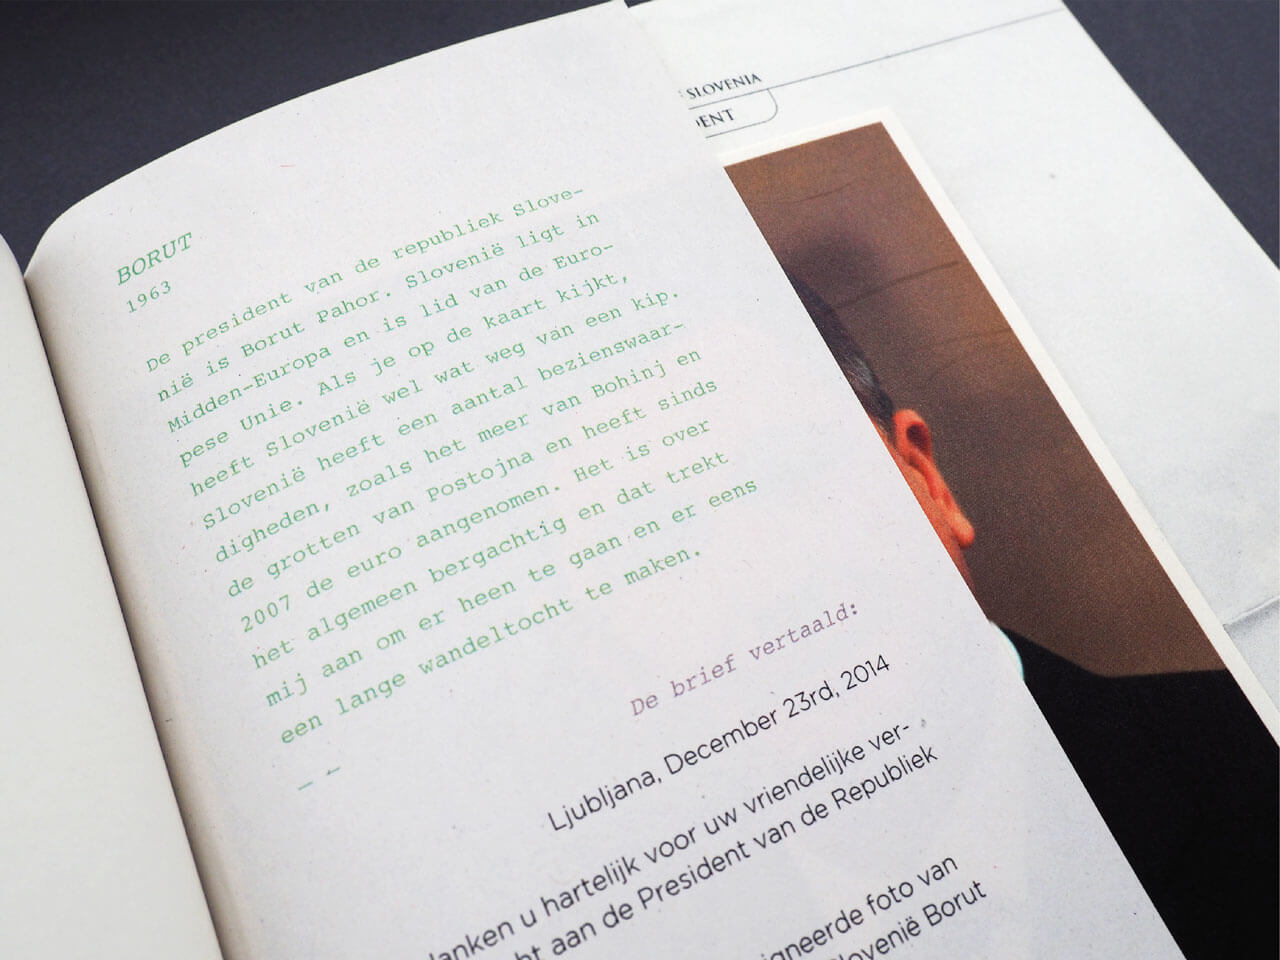 BORUT
1963
De president van de republiek Slove-
nië is Borut Pahor. Slovenië ligt in
Midden-Europa en is lid van de Euro-
pese Unie. Als je op de kaart kijkt,
heeft Slovenië wel wat weg van een kip.
Slovenië heeft een aantal bezienswaar-
digheden, zoals het meer van Bohinj en
de grotten van Postojna en heeft sinds
2007 de euro aangenomen. Het is over
het algemeen bergachtig en dat trekt
mij aan om er heen te gaan en er eens
een lange wandeltocht te maken.
— —
De brief vertaald:
Ljubljana, December 23rd, 2014
u hartelijk voor uw vriendelijke ver-
aan de President van de Republiek
foto van
Borut
SLOVENIA